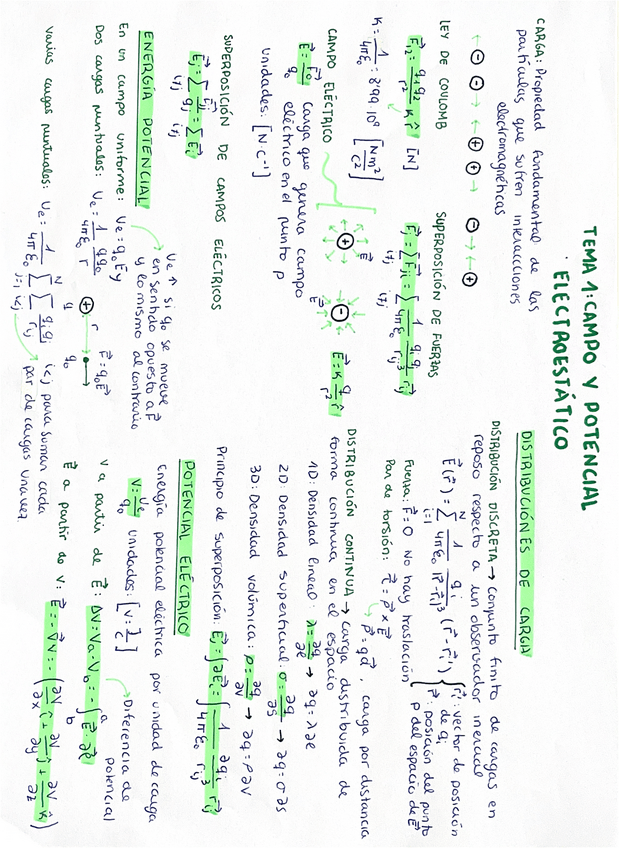 TEMA 1: CAMPO Y POTENCIAL
ELECTROESTÁTICO
CARGA: Propiedad fundamental de las
partículas que sufren interacciones
electromagnéticas
⊖ ⊖ → ← ⊕ ⊕ → ⊖ → ← ⊕
LEY DE COULOMB
F⃗₁₂ = q₁q₂/r² K r̂ [N]
K = 1/4πε₀ = 8'99·10⁹ [Nm²/C²]
SUPERPOSICIÓN DE FUERZAS
F⃗j = ∑ F⃗ji = ∑ 1/4πε₀ qi qj/rij³ r⃗ij
i≠j i≠j
CAMPO ELÉCTRICO
E⃗ = F⃗/q₀ carga que genera campo
eléctrico en el punto P
unidades: [N·C⁻¹]
⊕ E⃗
E⃗ ⊖
E⃗ = K q/r² r̂
SUPERPOSICIÓN DE CAMPOS ELÉCTRICOS
E⃗j = ∑ F⃗ij/qj = ∑ E⃗i
i≠j i≠j
ENERGÍA POTENCIAL
En un campo uniforme: Ue = q₀Ey
Ue ↑ si q₀ se mueve
en sentido opuesto a F⃗
y lo mismo al contrario
Dos cargas puntuales: Ue = 1/4πε₀ qq₀/r
q r q₀ F⃗ = q₀E⃗
Varias cargas puntuales: Ue = 1/4πε₀ ∑ ∑ qi qj/rij i<j para sumar cada
par de cargas una vez
DISTRIBUCIÓNES DE CARGA
DISTRIBUCIÓN DISCRETA → conjunto finito de cargas en
reposo respecto a un observador inercial
E⃗(r⃗) = ∑ 1/4πε₀ qi/|r⃗-r⃗i|³ (r⃗-r⃗i')
r⃗i': vector de posición
de qi
r⃗: posición del punto
P del espacio de E⃗
Fuerza: F⃗=0 No hay traslación
Par de torsión: τ⃗ = p⃗ × E⃗
p⃗ = qd⃗, carga por distancia
DISTRIBUCIÓN CONTINUA → carga distribuida de
forma continua en el espacio
1D: Densidad lineal: λ = ∂q/∂l → ∂q = λ∂l
2D: Densidad superficial: σ = ∂q/∂S → ∂q = σ∂S
3D: Densidad volúmica: ρ = ∂q/∂V → ∂q = ρ∂V
Principio de superposición: E⃗j = ∫∂E⃗i = ∫ 1/4πε₀ ∂qi/rij³ r⃗ij
POTENCIAL ELÉCTRICO
Energía potencial eléctrica por unidad de carga
V = Ue/q₀ unidades: [V = J/C]
Diferencia de
potencial
V a partir de E⃗: ΔV = Va-Vb = -∫ E⃗·∂l⃗
E⃗ a partir de V: E⃗ = -∇⃗V = -(∂V/∂x î + ∂V/∂y ĵ + ∂V/∂z k̂)